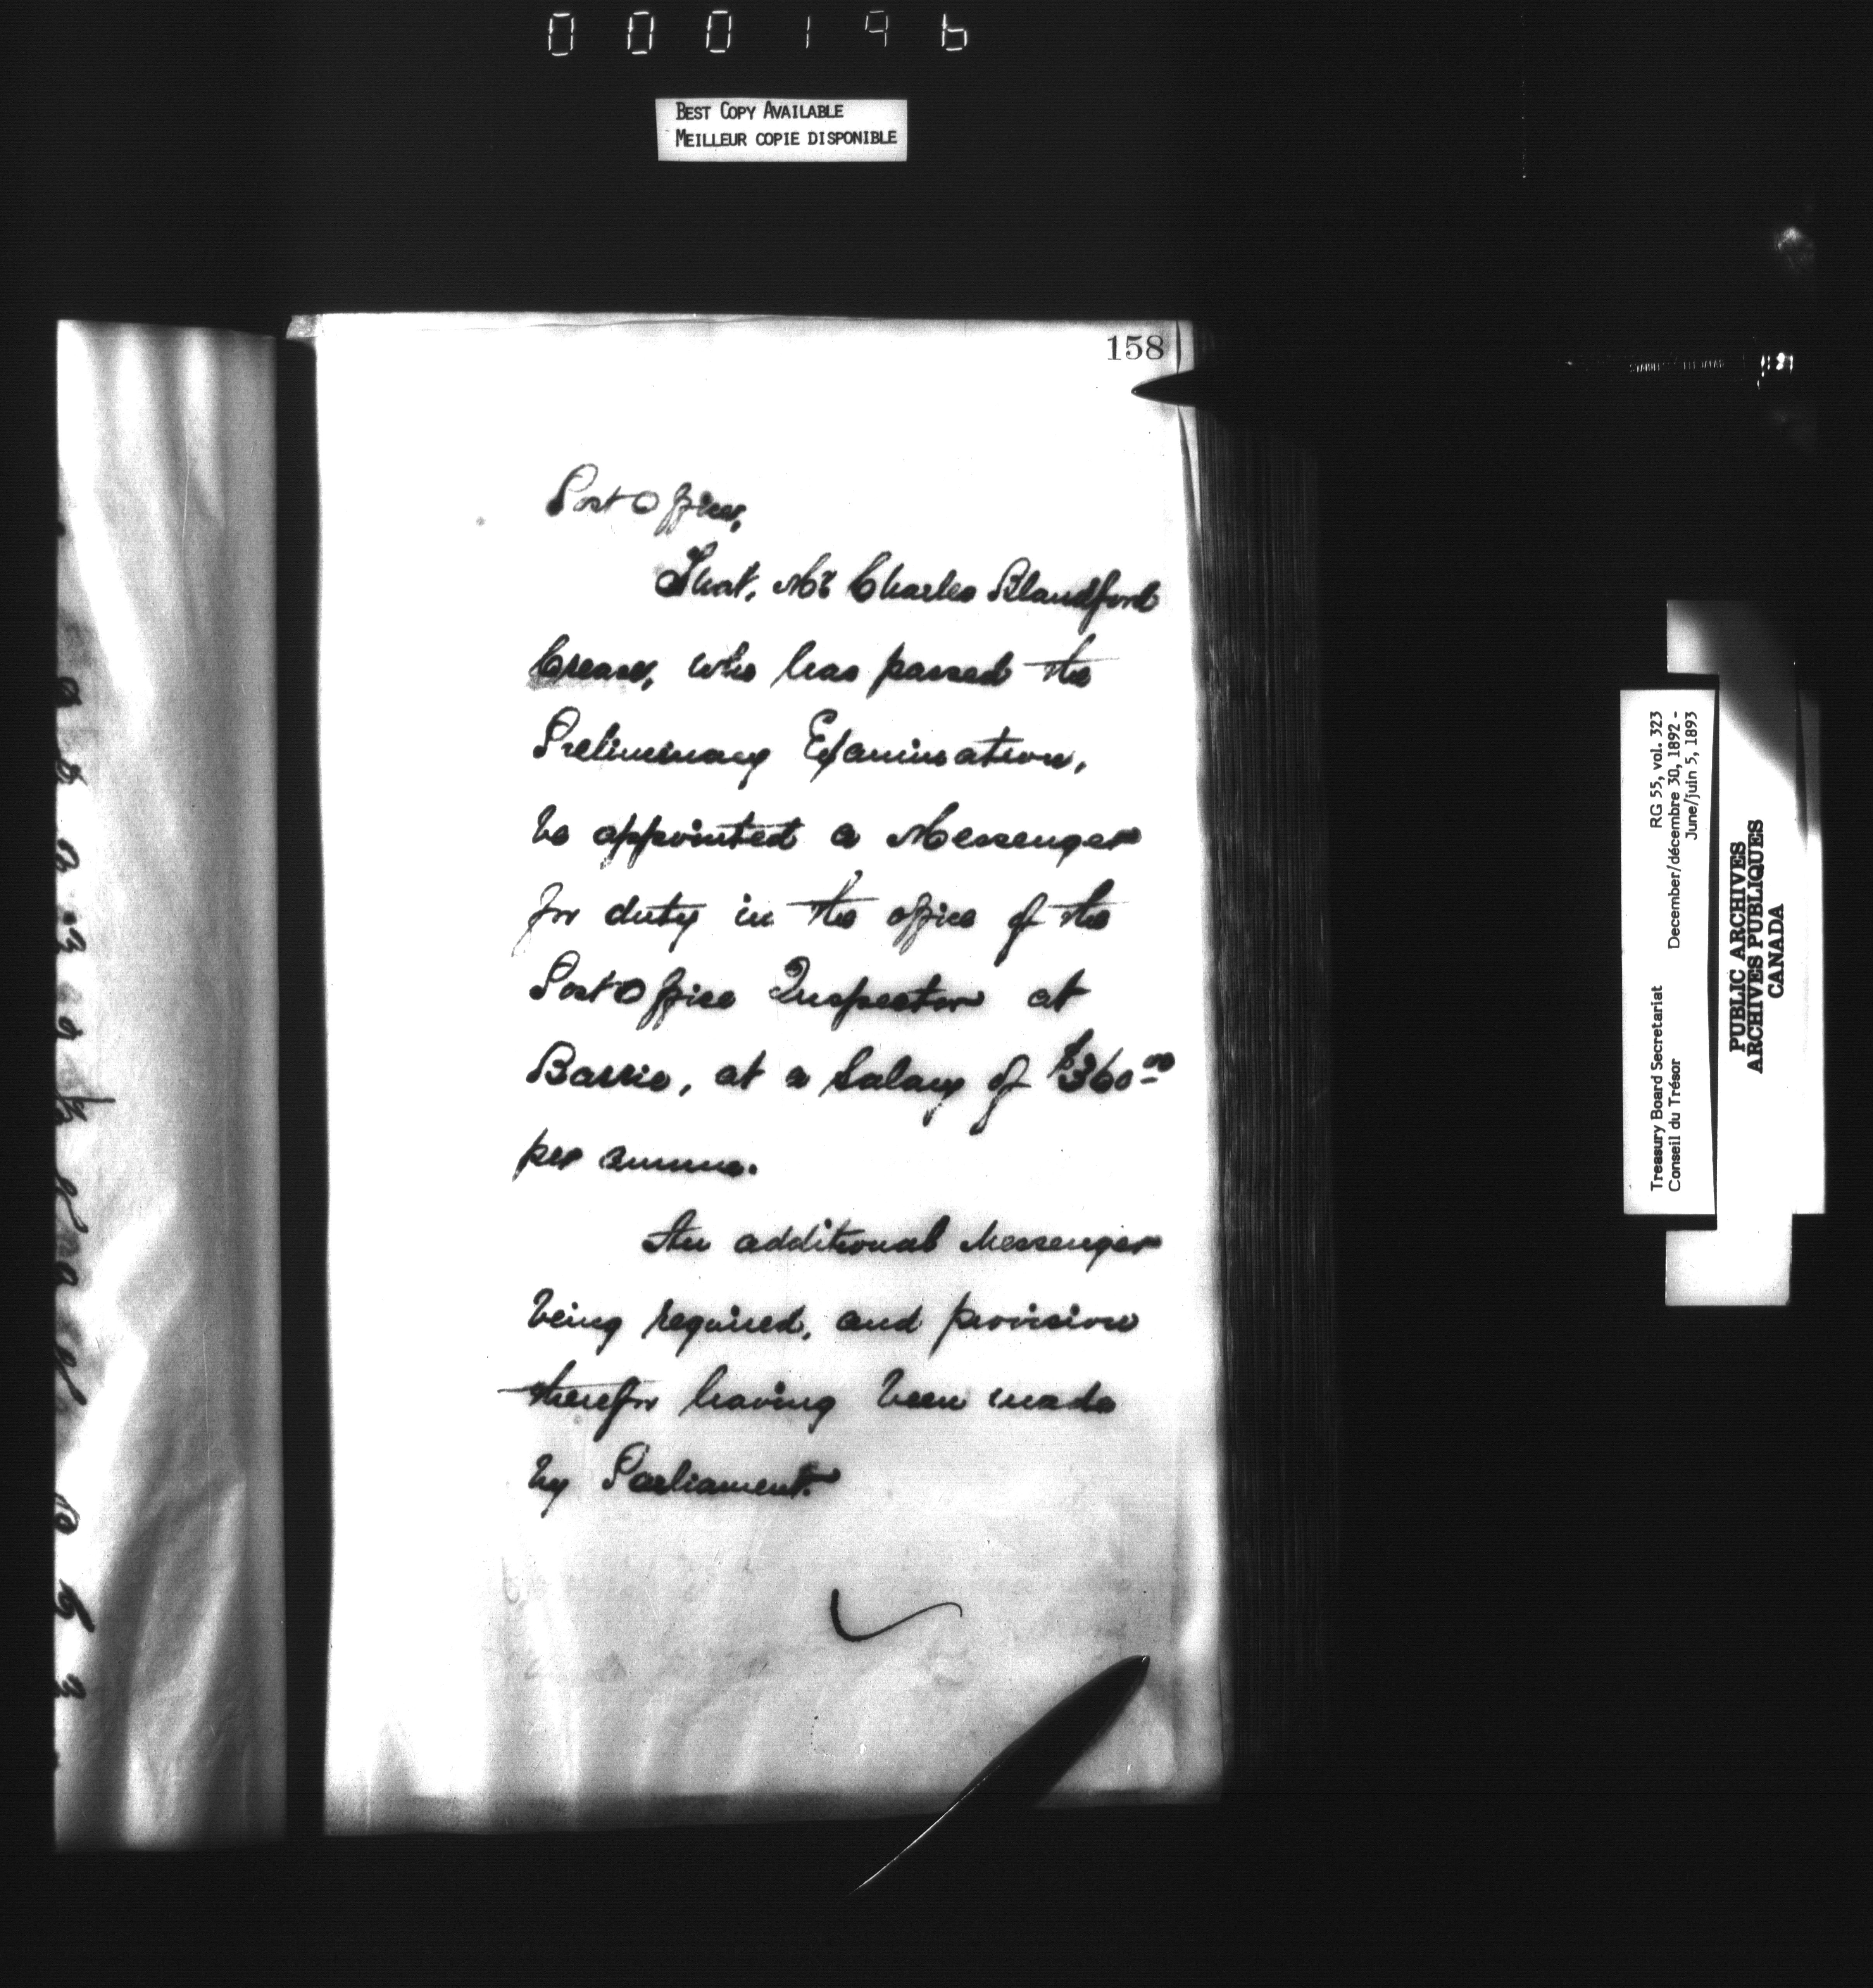 000196
BEST COPY AVAILABLE
MEILLEUR COPIE DISPONIBLE
158
Post Office,
That, Mr Charles Blandford
Crease, who has passed the
Preliminary Examination,
be appointed a Messenger
for duty in the office of the
Post Office Inspector at
Barrie, at a Salary of $360 00
per annum.
An additional Messenger
being required, and provision
therefor having been made
by Parliament.
Treasury Board Secretariat RG 55, vol. 323
Conseil du Trésor December/décembre 30, 1892 -
June/juin 5, 1893
PUBLIC ARCHIVES
ARCHIVES PUBLIQUES
CANADA